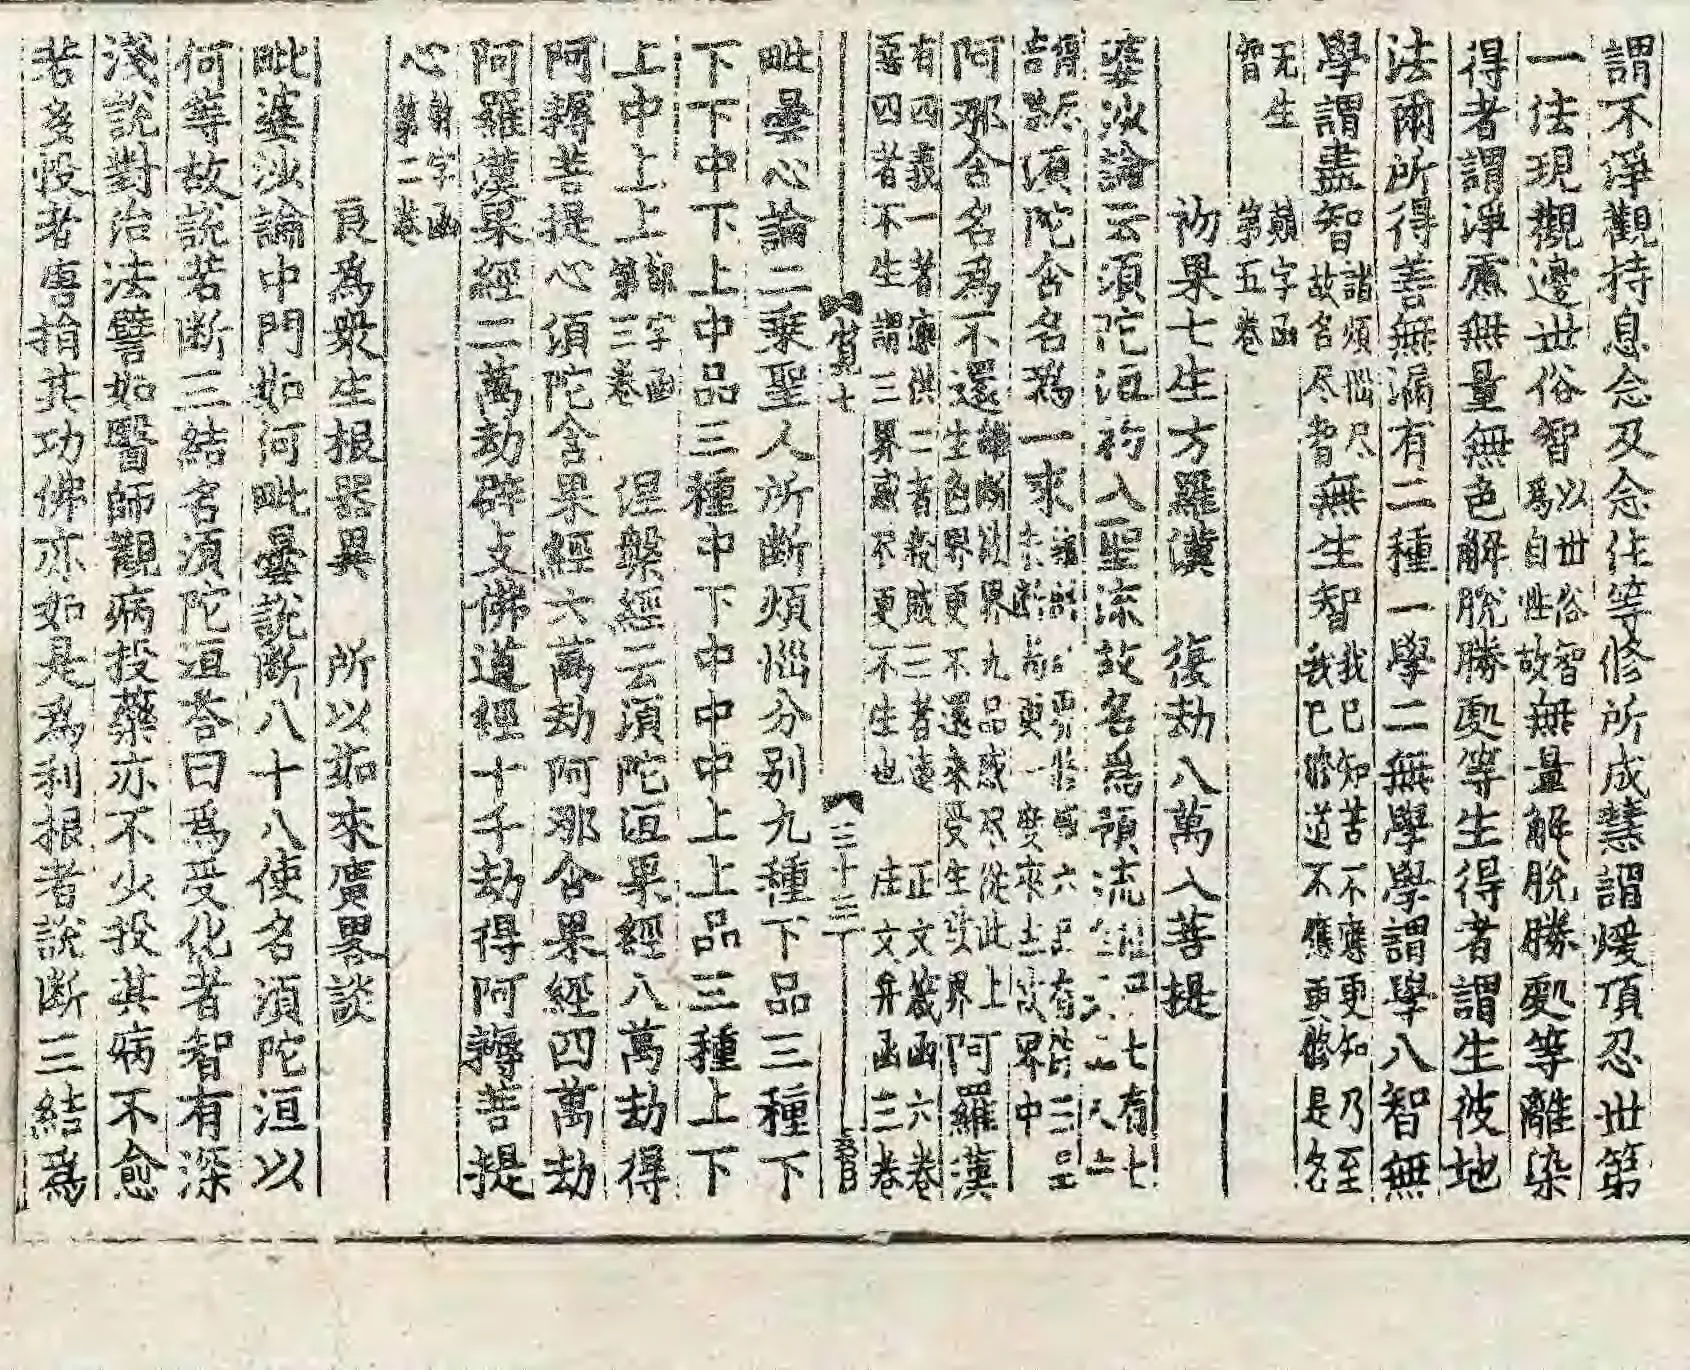 謂不淨觀持息念及念住等修所成慧謂煖頂忍世第
一法現觀邊世俗智以世俗智為自性故無量解脫勝處等離染
得者謂淨慮無量無色解脫勝處等生得者謂生彼地
法爾所得善無漏有二種一學二無學學謂學八智無
學謂盡智諸煩惱尽故名尽智無生智我已知苦不應更知乃至我已修道不應更修是名
无生智 巔字函第五卷
初果七生方羅漢 復劫八萬入菩提
婆沙論云須陀洹初入聖流故名為預流七有七
須陀含名為一來
阿那含名為不還繼断欲界九品惑尽從此上生色界更不還來受生欲界阿羅漢
有四義一者應供二者殺賊三者遠惡四者不生謂三界惑不更不生也 正文箴函六卷庄文弁函三卷
覓七 三十三
毗曇心論二乘聖人所断煩惱分別九種下品三種下
下下中下上中品三種中下中中中上上品三種上下
上中上上字函第三卷 涅槃經云須陀洹果經八萬劫得
阿耨菩提心須陀含果經六萬劫阿那含果經四萬劫
阿羅漢果經二萬劫辟支佛道經十千劫得阿耨菩提
心字函第二卷
良為衆生根器異 所以如來廣畧談
毗婆沙論中門如何毗曇說断八十八使名須陀洹以
何等故說若断三結名須陀洹荅曰爲受化者智有深
淺說對治法譬如醫師觀病投藥亦不少投其病不愈
若多投者唐捐其功佛亦如是爲利根者說断三結爲